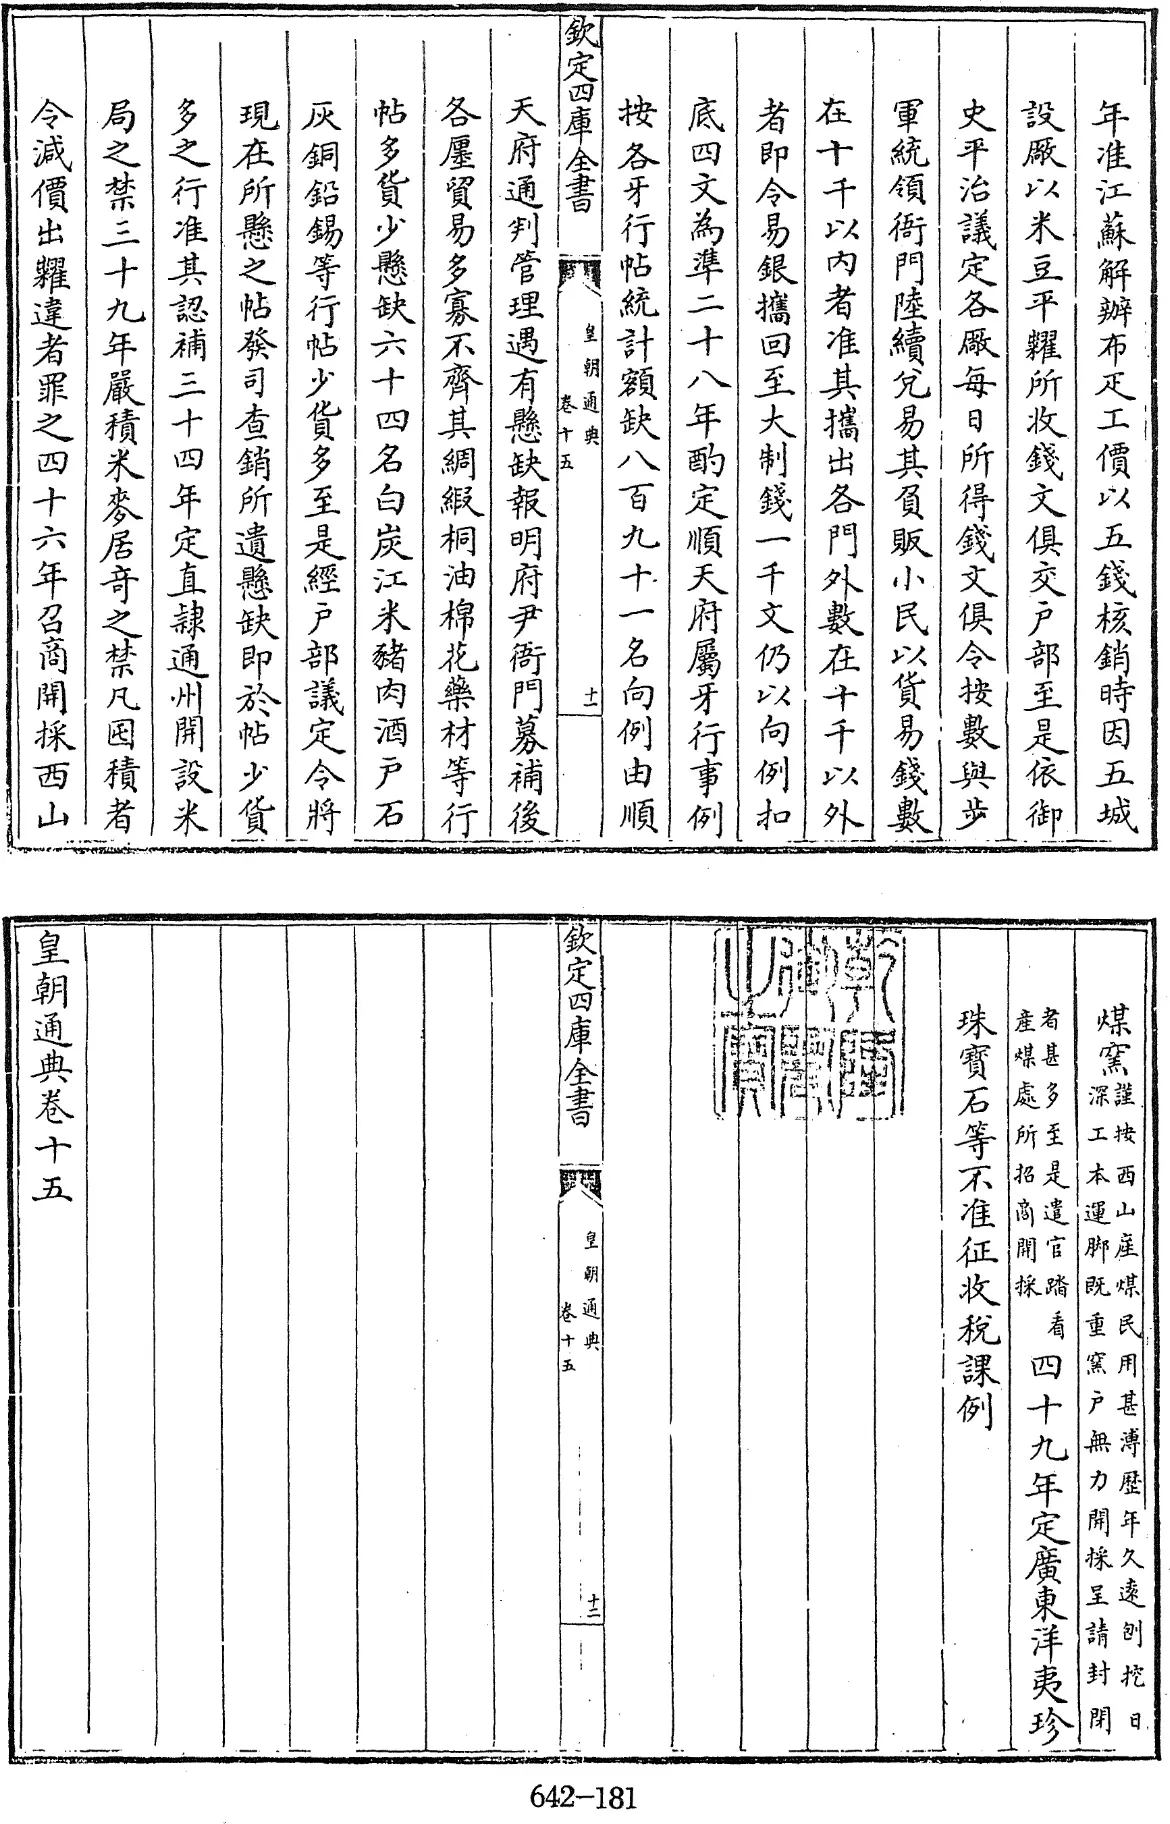 年准江蘇解辦布疋工價以五錢核銷時因五城
設厰以米豆平糶所收錢文俱交户部至是依御
史平治議定各厰每日所得錢文俱令按數與步
軍統領衙門陸續兌易其負販小民以貨易錢數
在十千以内者准其攜出各門外數在十千以外
者即令易銀攜回至大制錢一千文仍以向例扣
底四文為準二十八年酌定順天府屬牙行事例
按各牙行帖統計額缺八百九十一名向例由順
欽定四庫全書
皇朝通典
卷十五
十一
天府通判管理遇有懸缺報明府尹衙門募補後
各㕓貿易多寡不齊其綢緞桐油棉花藥材等行
帖多貨少懸缺六十四名白炭江米豬肉酒户石
灰銅鉛錫等行帖少貨多至是經户部議定令將
現在所懸之帖發司查銷所遺懸缺即於帖少貨
多之行准其認補三十四年定直隷通州開設米
局之禁三十九年嚴積米麥居奇之禁凡囤積者
令減價出糶違者罪之四十六年召商開採西山
煤窯
謹按西山産煤民用甚溥歷年久遠刨挖日
深工本運脚既重窯户無力開採呈請封閉
者甚多至是遣官踏看
産煤處所招商開採
四十九年定廣東洋夷珍
珠寶石等不准征收税課例
乾隆
御覽
之寶
欽定四庫全書
皇朝通典
卷十五
十二
皇朝通典卷十五
642-181